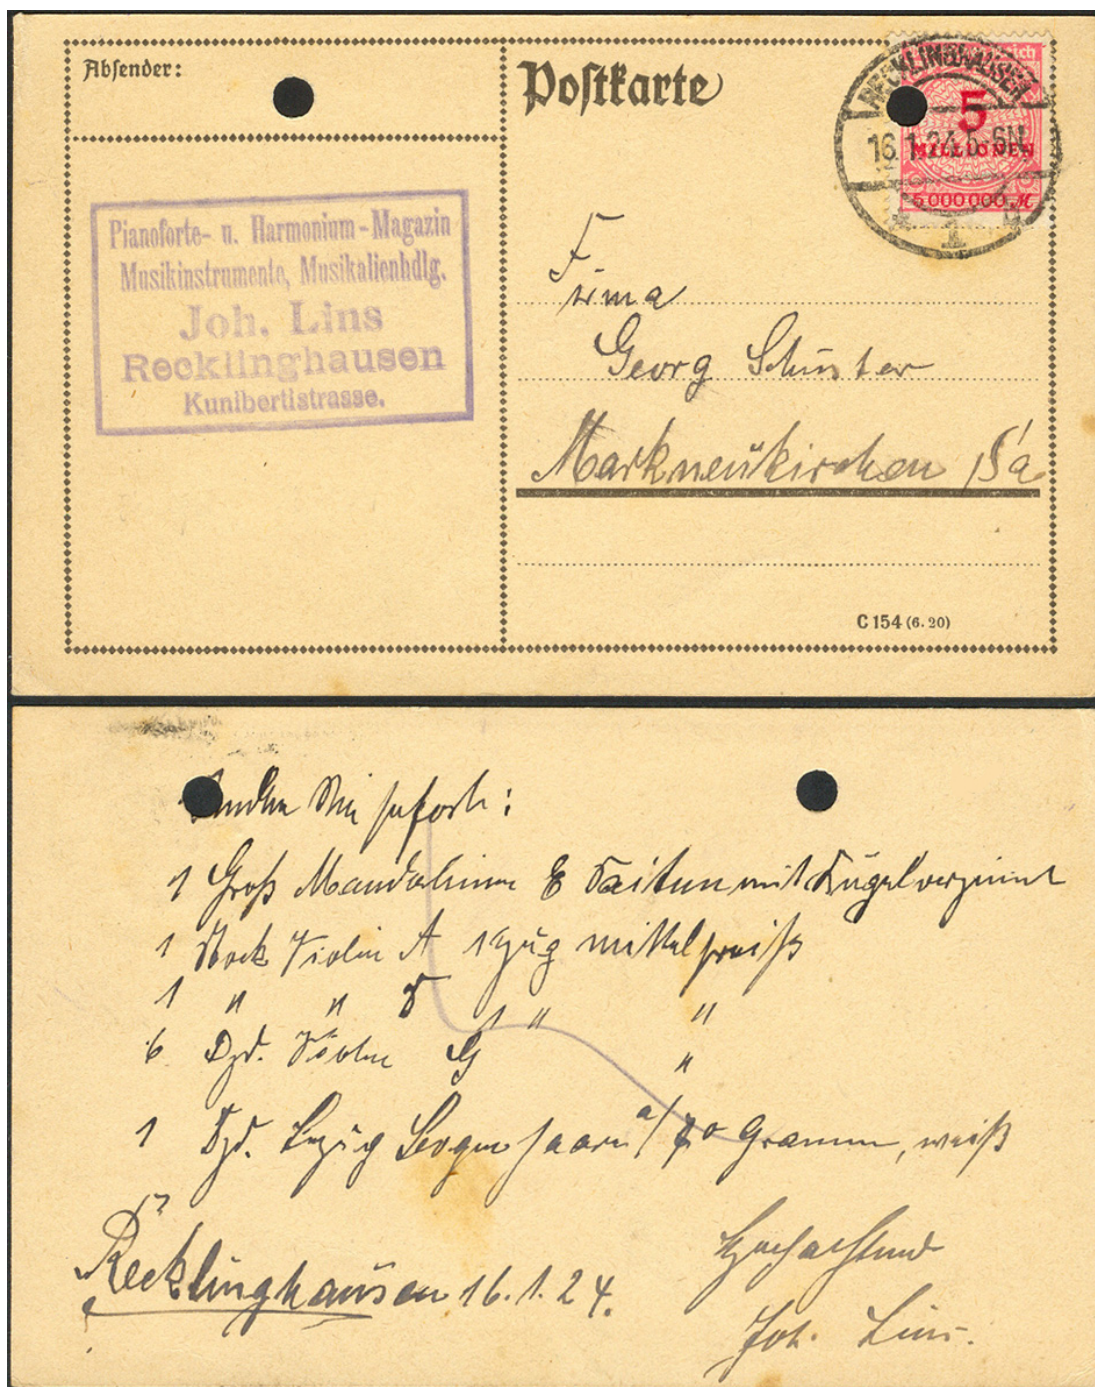 Absender:
Postkarte
Pianoforte- u. Harmonium-Magazin
Musikinstrumente, Musikalienhdlg.
Joh. Lins
Recklinghausen
Kunibertistrasse.
RECKLINGHAUSEN
16.1.24.5-6N.
* 1
5
MILLIONEN
5000000 M
Firma
Georg Schuster
Markneukirchen i/Sa
C 154 (6.20)
Senden Sie sofort:
1 Groß Mandolinen E Saiten mit Kugel verzinnt
1 Stock Violin A 1züg mittelpreiß
1 " " D 1 " "
6 Dzd. Violin G "
1 Dzd. Bezüg Bogenhaare a/ Gramm, weiß
Recklinghausen 16.1.24.
Hochachtend
Joh. Lins.